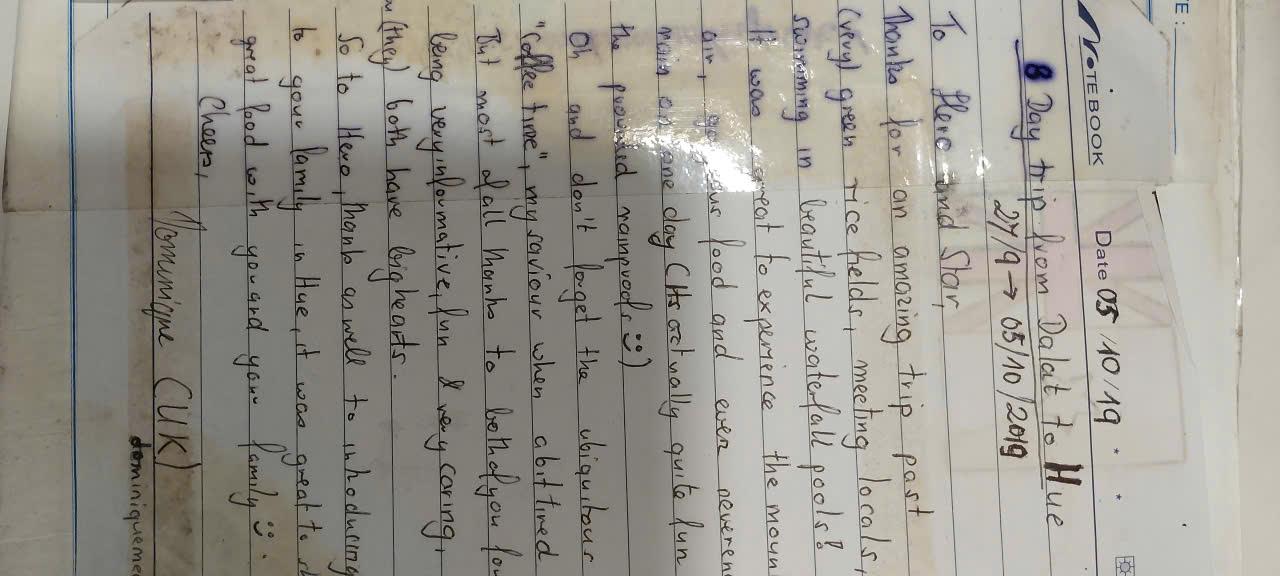 TE:
NOTEBOOK
Date 05/10/19
8 Day trip from Dalat to Hue
27/9 → 05/10/2019
To Hero and Star,
Thanks for an amazing trip past
(very) green rice fields, meeting locals,
swimming in beautiful waterfall pools!
It was great to experience the moun
air, gorgeous food and even
rain on one day (It's actually quite fun
the provided rainproofs ☺)
Oh and don't forget the ubiquitous
"coffee time", my saviour when a bit tired
But most of all thanks to both of you for
being very informative, fun & very caring,
(they) both have big hearts.
So to Hero, thanks as well to introducing
to your family in Hue, it was great to
great food with you and your family ☺.
Cheers,
Dominique (UK)
dominiqueme